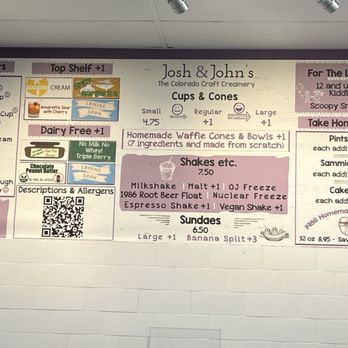 Top Shelf +1
CREAM
Amaretto Sour
with Cherry
COMING
SOON
Dairy Free +1
No Milk No
Whey!
Triple Berry
Chocolate
Peanut Butter
COMING
SOON
Descriptions & Allergens
Josh & John's
The Colorado Craft Creamery
Cups & Cones
Small Regular Large
4.75 +1 +1
Homemade Waffle Cones & Bowls +1
(7 ingredients and made from scratch)
Shakes etc.
7.50
Milkshake | Malt +1 | OJ Freeze
1986 Root Beer Float | Nuclear Freeze
Espresso Shake +1 | Vegan Shake +1
Sundaes
6.50
Large +1 Banana Split +3
For The L
12 and u
Kiddi
Scoopy Sn
Take Hom
Pints
each addi
Sammi
each addi
Cake
each addi
1986 Homemad
32 oz 8.95 • Sav